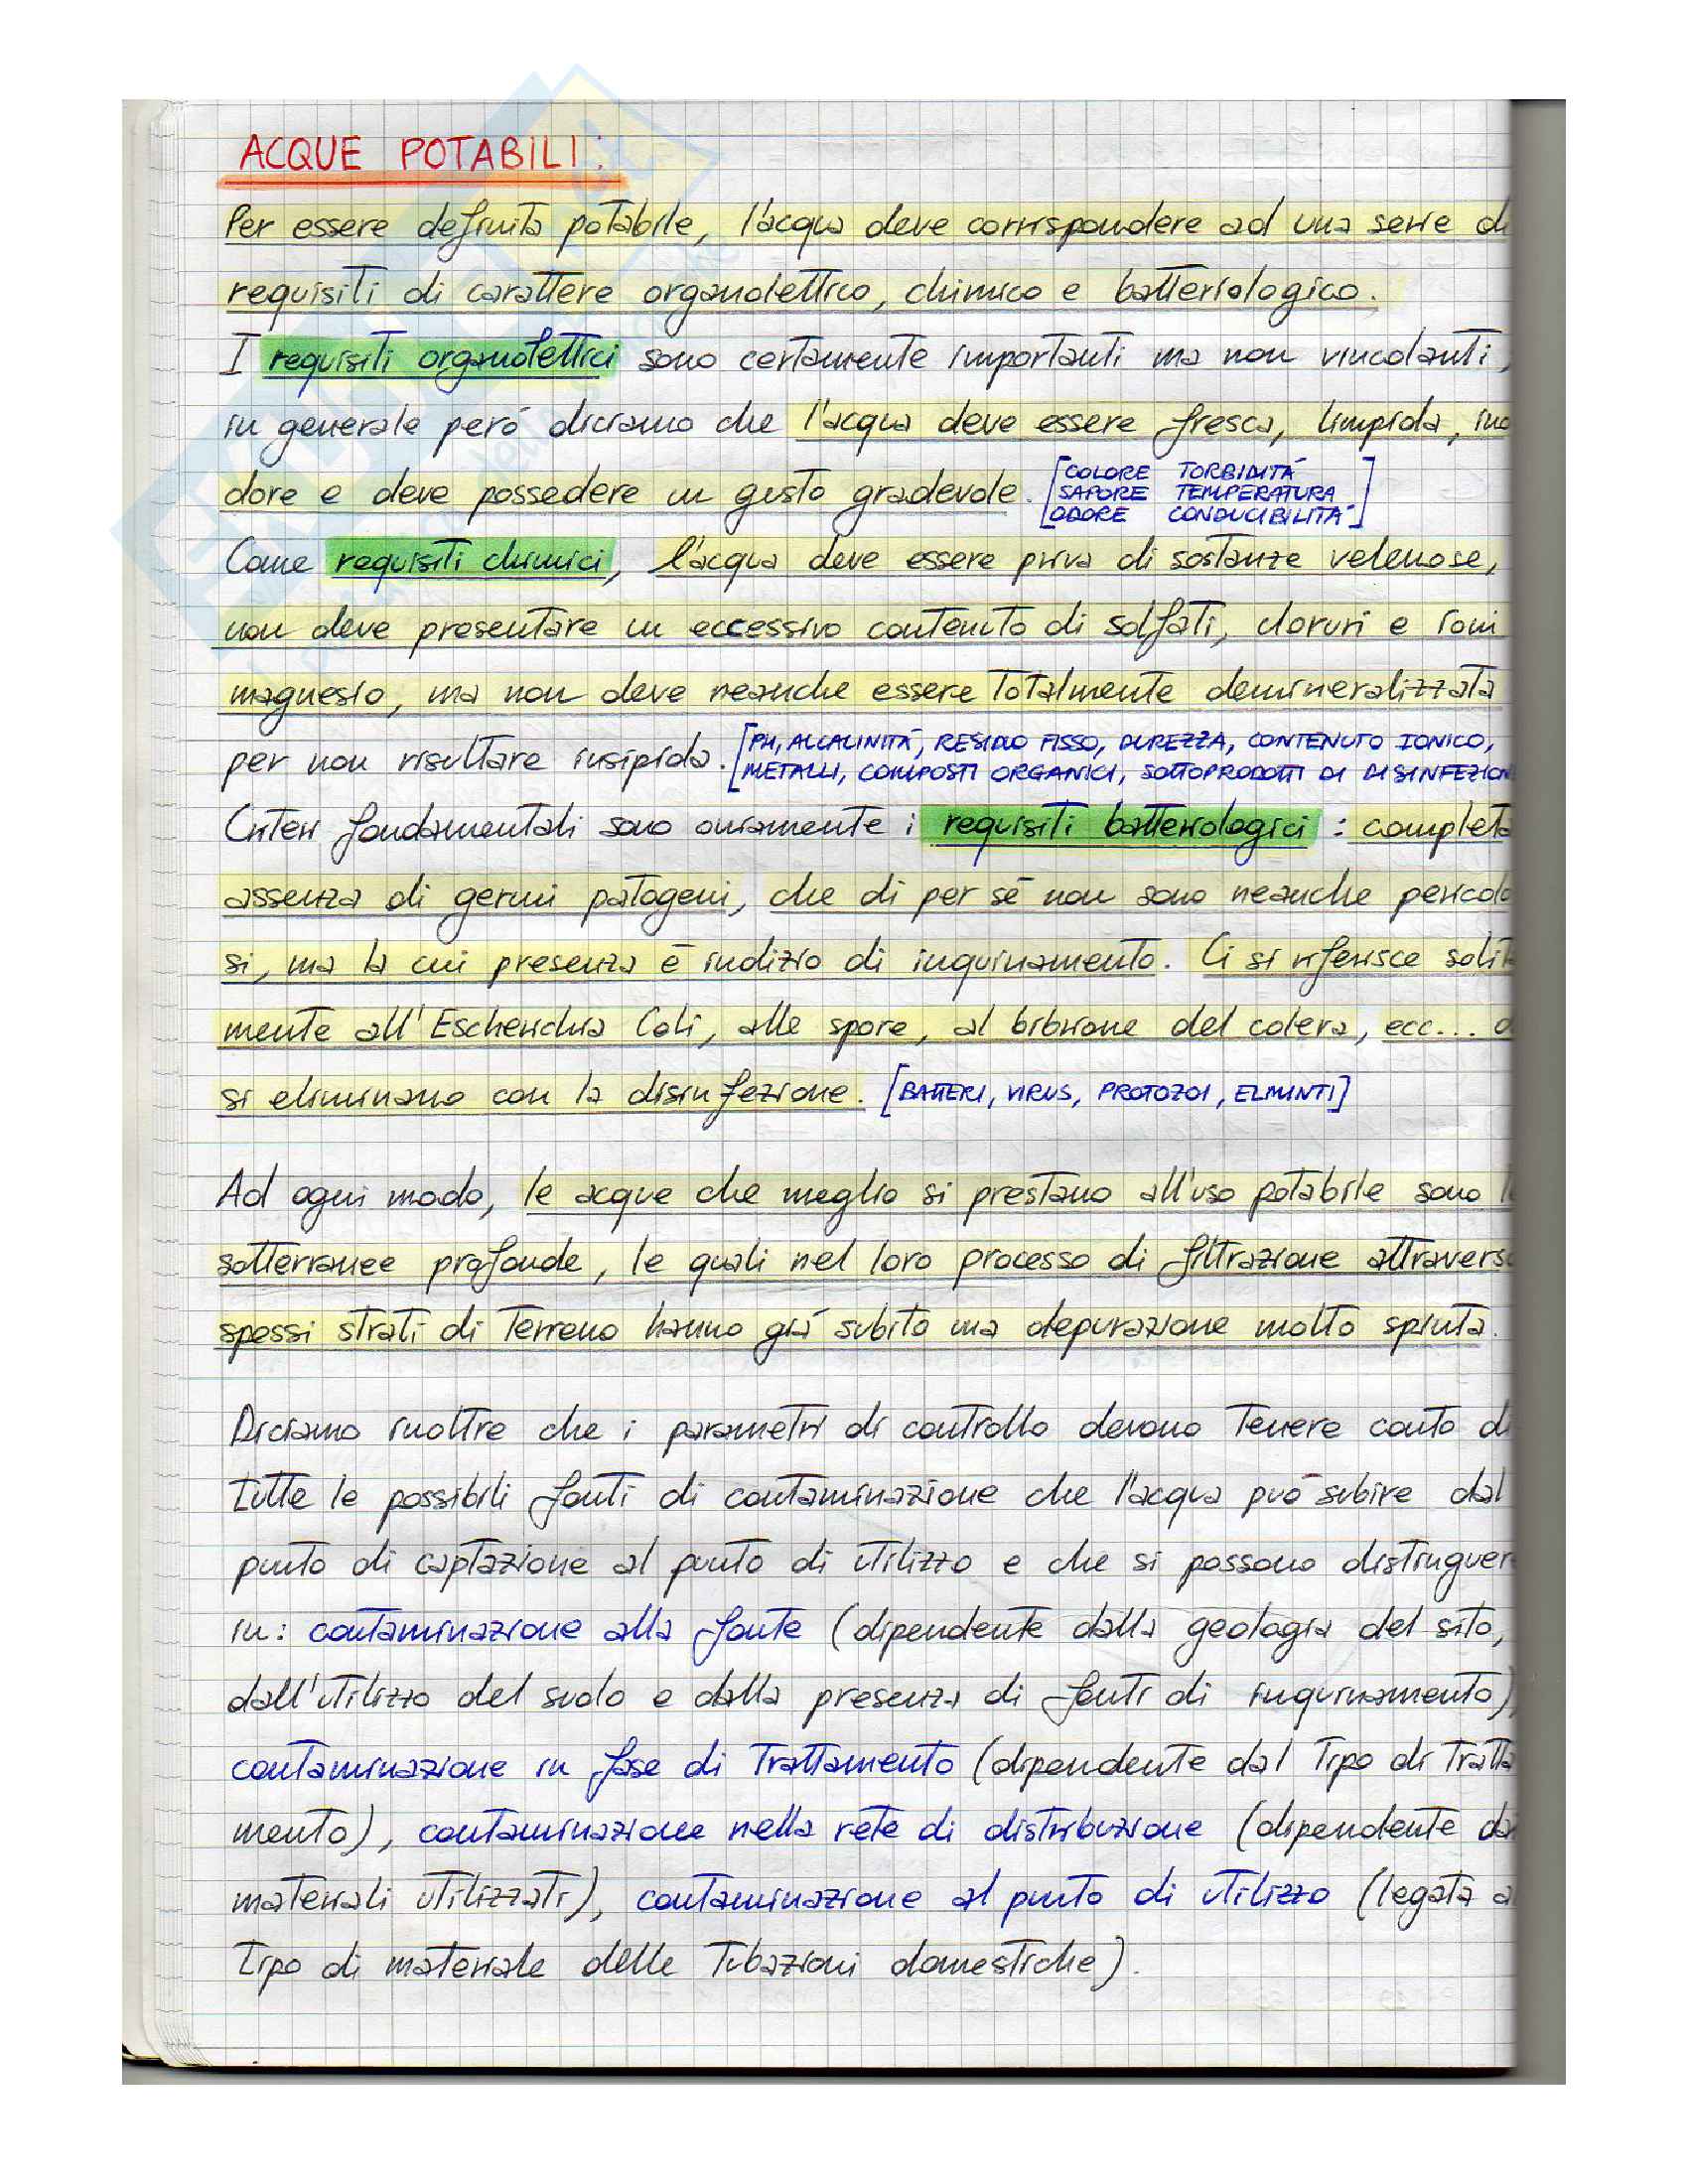 ACQUE POTABILI:
Per essere definita potabile, l'acqua deve corrispondere ad una serie di
requisiti di carattere organolettico, chimico e batteriologico.
I requisiti organolettici sono certamente importanti ma non vincolanti,
in generale però diciamo che l'acqua deve essere fresca, limpida, ino
dore e deve possedere un gusto gradevole. [COLORE TORBIDITÀ
SAPORE TEMPERATURA
ODORE CONDUCIBILITÀ]
Come requisiti chimici, l'acqua deve essere priva di sostanze velenose,
non deve presentare un eccessivo contenuto di solfati, cloruri e ioni
magnesio, ma non deve neanche essere totalmente demineralizzata
per non risultare insipida. [PH, ALCALINITÀ, RESIDUO FISSO, DUREZZA, CONTENUTO IONICO,
METALLI, COMPOSTI ORGANICI, SOTTOPRODOTTI DI DISINFEZION
Criteri fondamentali sono ovviamente i requisiti batteriologici: completa
assenza di germi patogeni, che di per sé non sono neanche pericolo
si, ma la cui presenza è indizio di inquinamento. Ci si riferisce solita
mente all'Escherichia Coli, alle spore, al bibrione del colera, ecc...
si eliminano con la disinfezione. [BATTERI, VIRUS, PROTOZOI, ELMINTI]
Ad ogni modo, le acque che meglio si prestano all'uso potabile sono le
sotterranee profonde, le quali nel loro processo di filtrazione attraverso
spessi strati di terreno hanno già subito una depurazione molto spinta.
Diciamo inoltre che i parametri di controllo devono tenere conto di
tutte le possibili fonti di contaminazione che l'acqua può subire dal
punto di captazione al punto di utilizzo e che si possono distinguer
in: contaminazione alla fonte (dipendente dalla geologia del sito,
dall'utilizzo del suolo e dalla presenza di fonti di inquinamento)
contaminazione in fase di trattamento (dipendente dal tipo di tratta
mento), contaminazione nella rete di distribuzione (dipendente dai
materiali utilizzati), contaminazione al punto di utilizzo (legata al
tipo di materiale delle tubazioni domestiche).